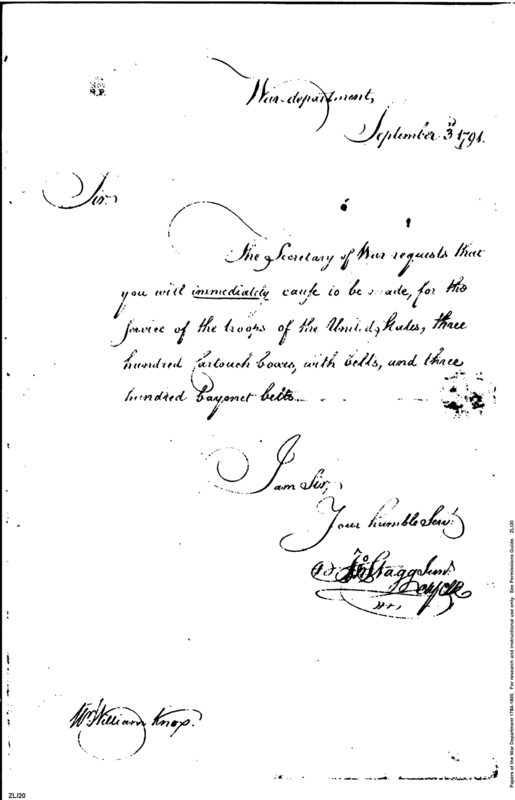 War-department,
September 3d 1791.
Sir.
The Secretary of War requests that
you will immediately cause to be made, for the
service of the troops of the United States, three
hundred Cartouch boxes, with belts, and three
hundred bayonet belts.
I am Sir,
Your humble Servt.
Jno Stagg Junr.
Mr. William Knox.
Papers of the War Department 1784-1800. For research and instructional use only. See Permissions Guide. ZLI20
ZLI20